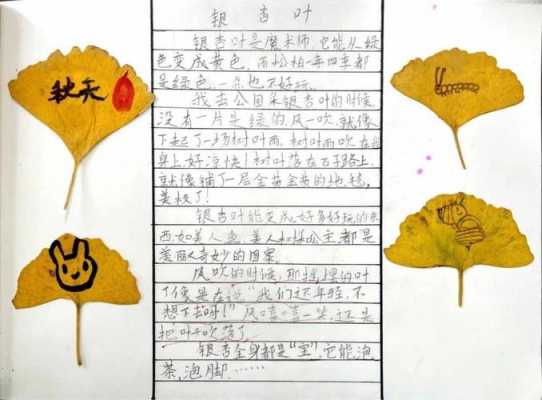 银杏叶
银杏叶是魔术师,它能从绿
色变成黄色,而松柏一年四季都
是绿色,一点也不好玩。
我去公园采银杏叶的时候
没有一片是绿的,风一吹,就像
下起了一场树叶雨,树叶雨吹在
身上,好凉快!树叶落在石子路上,
就像铺了一层金黄金黄的地毯,
美极了!
银杏叶能变成好多好玩的东
西,如美人鱼,美人和公主都是
美丽又奇妙的图案。
风吹的时候,那摇摆的叶
子像是在说“我们还年轻,不
想下去呀!”风嘻嘻一笑,还是
把叶子吹落了。
银杏全身都是“宝”,它能泡
茶,泡脚……
秋天